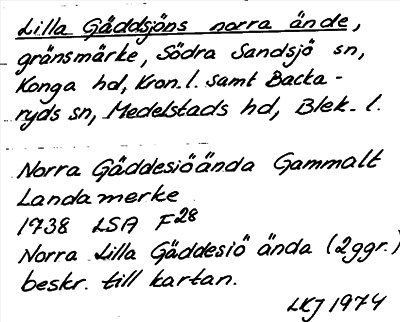 Lilla Gäddsjöns norra ände,
gränsmärke, Södra Sandsjö sn,
Konga hd, Kron. l. samt Backa-
ryds sn, Medelstads hd, Blek. l.
Norra Gäddesiöända Gammalt
Landamerke
1738 LSA F28
Norra Lilla Gäddesiö ända (2ggr.)
beskr. till kartan.
LKJ 1974